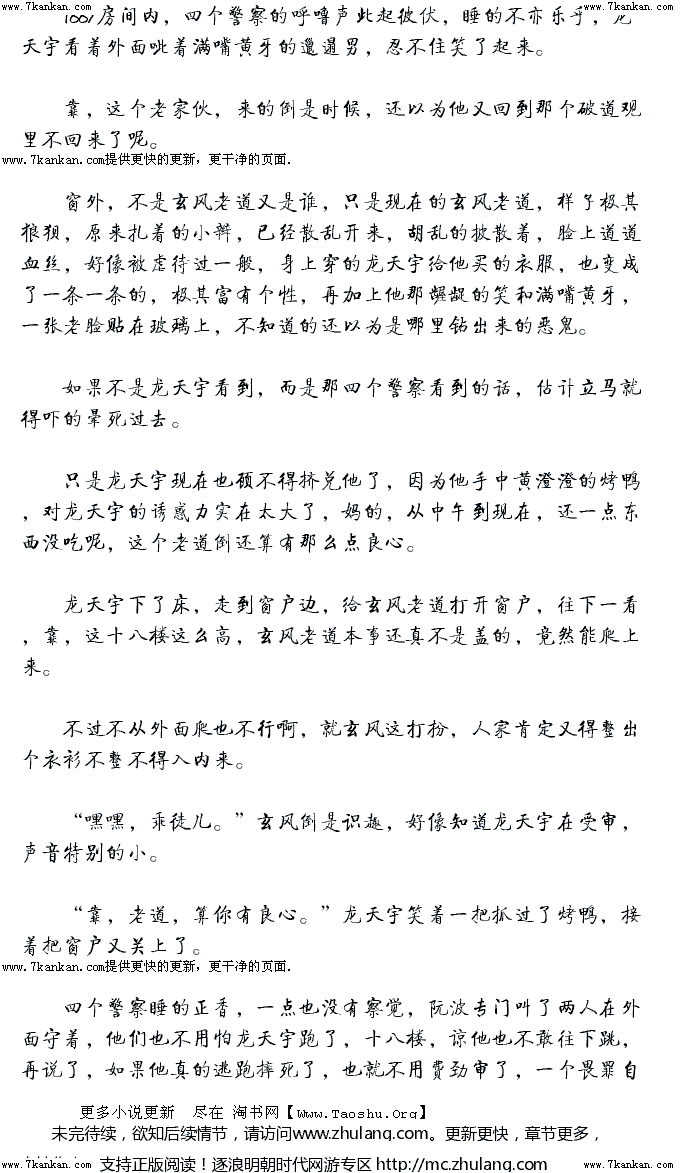 www.7kankan.com www.7kankan.com
1001房间内，四个警察的呼噜声此起彼伏，睡的不亦乐乎，龙
天宇看着外面呲着满嘴黄牙的邋遢男，忍不住笑了起来。
靠，这个老家伙，来的倒是时候，还以为他又回到那个破道观
里不回来了呢。
www.7kankan.com提供更快的更新，更干净的页面.
窗外，不是玄风老道又是谁，只是现在的玄风老道，样子极其
狼狈，原来扎着的小辫，已经散乱开来，胡乱的披散着，脸上道道
血丝，好像被虐待过一般，身上穿的龙天宇给他买的衣服，也变成
了一条一条的，极其富有个性，再加上他那龌龊的笑和满嘴黄牙，
一张老脸贴在玻璃上，不知道的还以为是哪里钻出来的恶鬼。
如果不是龙天宇看到，而是那四个警察看到的话，估计立马就
得吓的晕死过去。
只是龙天宇现在也顾不得挤兑他了，因为他手中黄澄澄的烤鸭
，对龙天宇的诱惑力实在太大了，妈的，从中午到现在，还一点东
西没吃呢，这个老道倒还算有那么点良心。
龙天宇下了床，走到窗户边，给玄风老道打开窗户，往下一看
，靠，这十八楼这么高，玄风老道本事还真不是盖的，竟然能爬上
来。
不过不从外面爬也不行啊，就玄风这打扮，人家肯定又得整出
个衣衫不整不得入内来。
“嘿嘿，乖徒儿。”玄风倒是识趣，好像知道龙天宇在受审，
声音特别的小。
“靠，老道，算你有良心。”龙天宇笑着一把抓过了烤鸭，接
着把窗户又关上了。
www.7kankan.com提供更快的更新，更干净的页面.
四个警察睡的正香，一点也没有察觉，阮波专门叫了两人在外
面守着，他们也不用怕龙天宇跑了，十八楼，谅他也不敢往下跳，
再说了，如果他真的逃跑摔死了，也就不用费劲审了，一个畏罪自
更多小说更新 尽在 淘书网【Www.Taoshu.Org】
未完待续，欲知后续情节，请访问www.zhulang.com。更新更快，章节更多，
www.7kankan.com 支持正版阅读！逐浪明朝时代网游专区 http://mc.zhulang.com www.7kankan.com